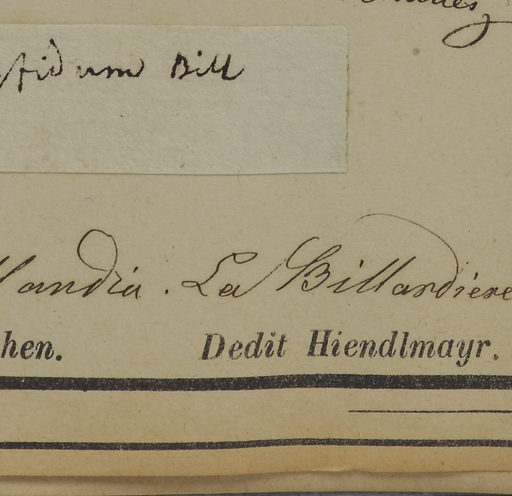 fidum Bill
andia. La Billardiere
hen. Dedit Hiendlmayr.